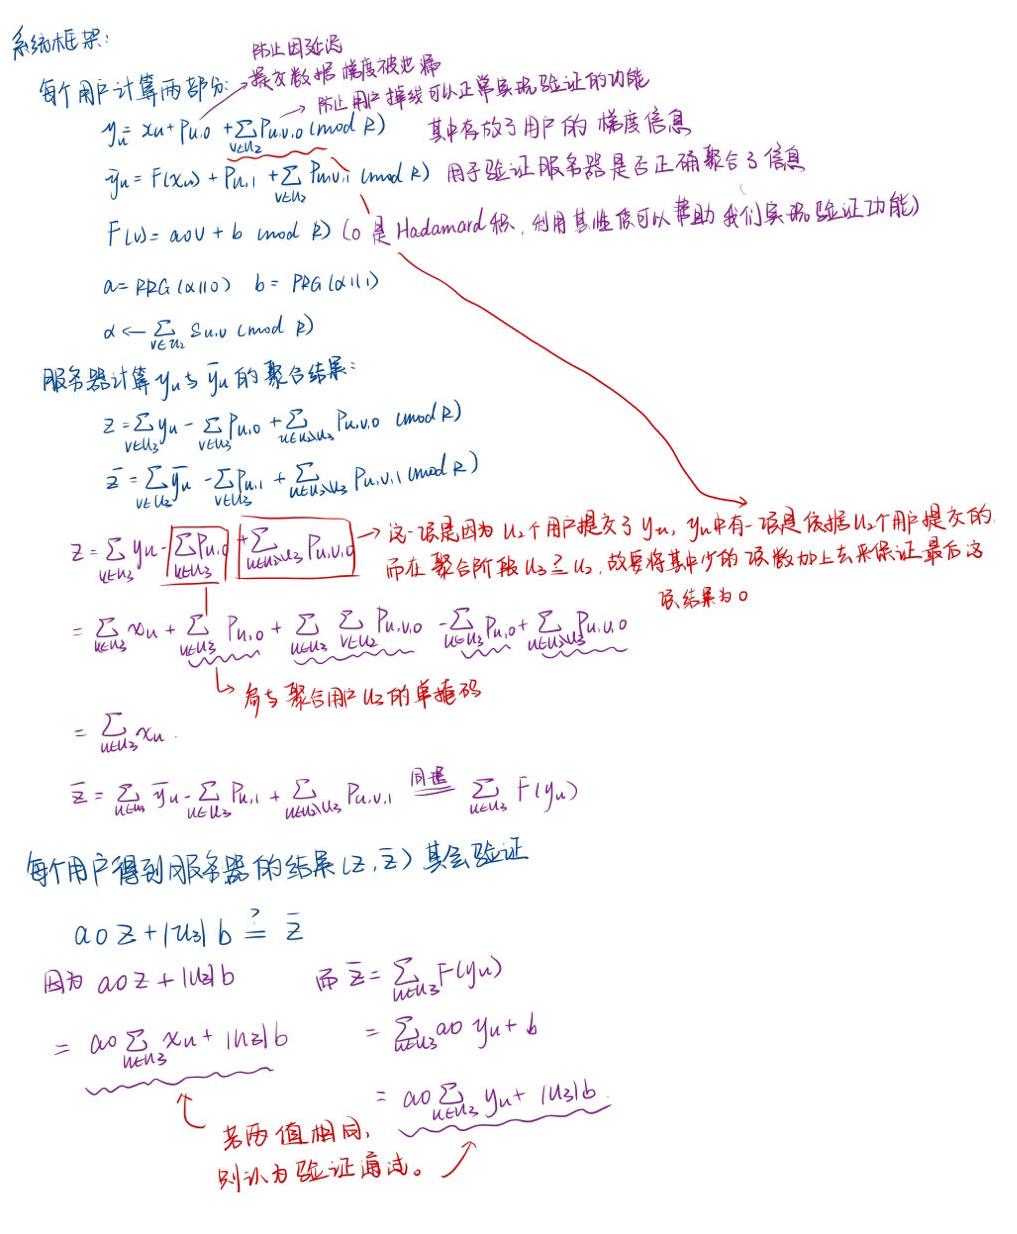 系统框架:
防止因延迟
提交数据梯度被泄漏
每个用户计算两部分:
防止用户掉线可以正常实现验证的功能
y_u = x_u + P_{u,0} + ∑_{v∈U_2} P_{u,v,0} (mod R) 其中存放了用户的梯度信息
ȳ_u = F(x_u) + P_{u,1} + ∑_{v∈U_2} P_{u,v,1} (mod R) 用于验证服务器是否正确聚合了信息
F(v) = a∘v + b mod R) (∘是Hadamard积,利用其性质可以帮助我们实现验证功能)
a = PRG(α||0) b = PRG(α||1)
α ← ∑_{v∈U_2} S_{u,v} (mod R)
服务器计算y_u与ȳ_u的聚合结果:
z = ∑_{v∈U_3} y_u - ∑_{v∈U_3} P_{u,0} + ∑_{u∈U_2\U_3} P_{u,v,0} (mod R)
z̄ = ∑_{v∈U_2} ȳ_u - ∑_{v∈U_3} P_{u,1} + ∑_{u∈U_2\U_3} P_{u,v,1} (mod R)
z = ∑_{u∈U_3} y_u - ∑_{u∈U_3} P_{u,0} + ∑_{u∈U_2\U_3} P_{u,v,0} → 这一项是因为U_2个用户提交了y_u, y_u中有一项是依据U_2个用户提交的.
而在聚合阶段U_3⊆U_2,故要将其中少的项数加上去来保证最后这
项结果为0
= ∑_{u∈U_3} x_u + ∑_{u∈U_3} P_{u,0} + ∑_{u∈U_3} ∑_{v∈U_2} P_{u,v,0} - ∑_{u∈U_3} P_{u,0} + ∑_{u∈U_2\U_3} P_{u,v,0}
参与聚合用户U_3的单掩码
= ∑_{u∈U_3} x_u.
z̄ = ∑_{u∈U_3} ȳ_u - ∑_{u∈U_3} P_{u,1} + ∑_{u∈U_2\U_3} P_{u,v,1} 同理= ∑_{u∈U_3} F(y_u)
每个用户得到服务器的结果(z, z̄)其会验证
a∘z + |U_3|b ?= z̄
因为 a∘z + |U_3|b 而 z̄ = ∑_{u∈U_3} F(y_u)
= a∘∑_{u∈U_3} x_u + |U_3|b = ∑_{u∈U_3} a∘y_u + b
= a∘∑_{u∈U_3} y_u + |U_3|b.
若两值相同,
则认为验证通过。